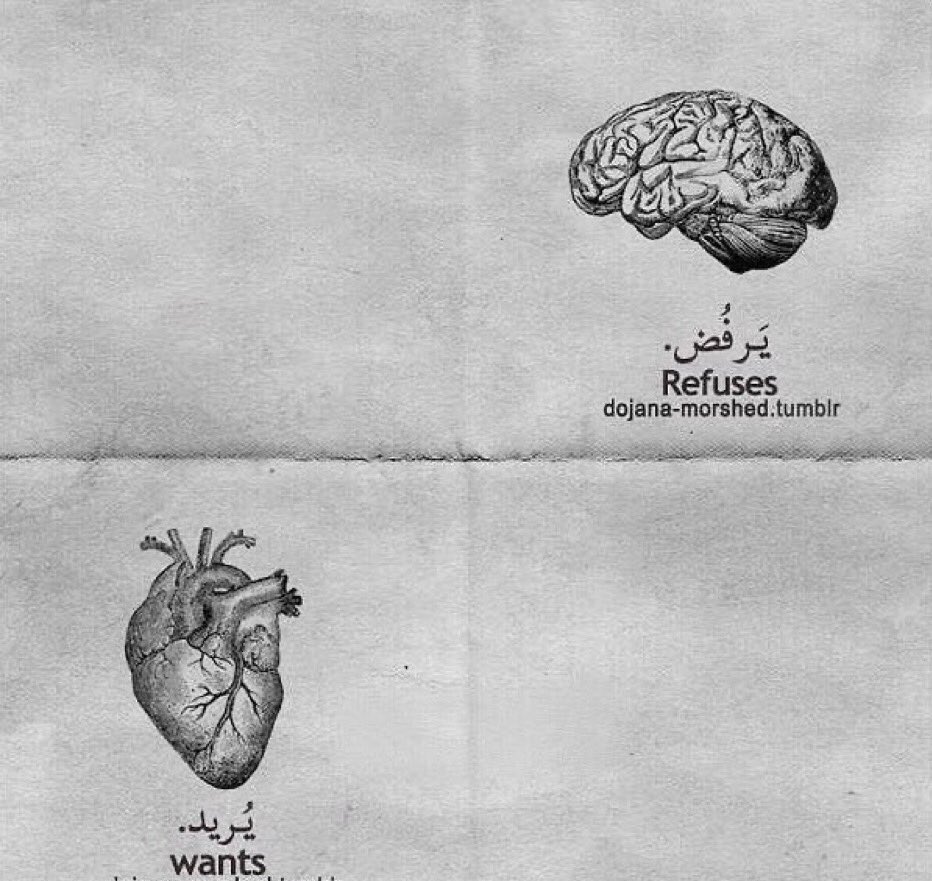 يَرفُض.
Refuses
dojana-morshed.tumblr
يُريد.
wants